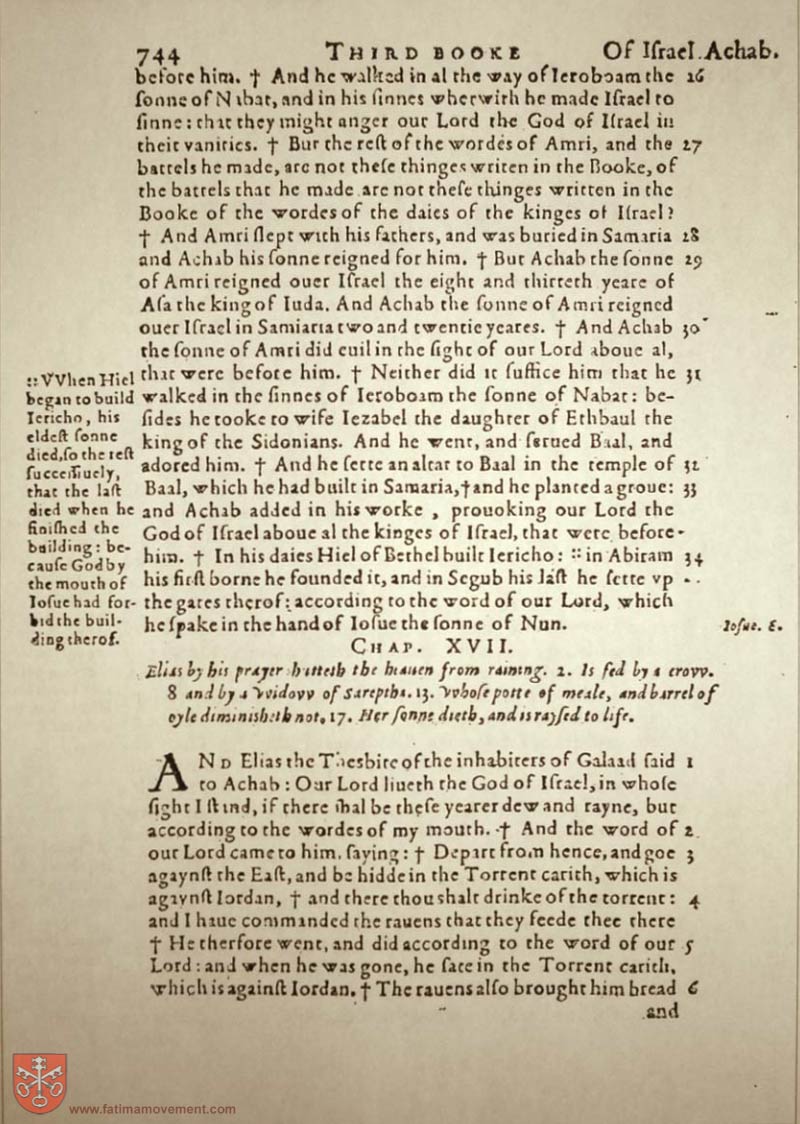 744 THIRD BOOKE Of Iſrael. Achab.
before him. † And he walked in al the way of Ieroboam the 26
ſonne of Nabat, and in his ſinnes wherwith he made Iſrael to
ſinne: that they might anger our Lord the God of Iſrael in
their vanities. † But the reſt of the wordes of Amri, and the 27
battels he made, are not theſe thinges writen in the Booke, of
the battels that he made are not theſe thinges written in the
Booke of the wordes of the daies of the kinges of Iſrael?
† And Amri ſlept with his fathers, and was buried in Samaria 28
and Achab his ſonne reigned for him. † But Achab the ſonne 29
of Amri reigned ouer Iſrael the eight and thirteth yeare of
Aſa the king of Iuda. And Achab the ſonne of Amri reigned
ouer Iſrael in Samiaria two and twentie yeares. † And Achab 30
the ſonne of Amri did euil in the ſight of our Lord aboue al,
that were before him. † Neither did it ſuffice him that he 31
walked in the ſinnes of Ieroboam the ſonne of Nabat: be-
ſides he tooke to wife Iezabel the daughter of Ethbaul the
king of the Sidonians. And he went, and ſerued Baal, and
adored him. † And he ſette an altar to Baal in the temple of 32
Baal, which he had built in Samaria, † and he planted a groue: 33
and Achab added in his worke, prouoking our Lord the
God of Iſrael aboue al the kinges of Iſrael, that were before
him. † In his daies Hiel of Bethel built Iericho: :: in Abiram 34
his firſt borne he founded it, and in Segub his laſt he ſette vp
the gates therof: according to the word of our Lord, which
he ſpake in the hand of Ioſue the ſonne of Nun.
:: VVhen Hiel
began to build
Iericho, his
eldeſt ſonne
died, ſo the reſt
ſucceſſiuely,
that the laſt
died when he
finiſhed the
building: be-
cauſe God by
the mouth of
Ioſue had for-
bid the buil-
ding therof.
Ioſue. 6.
CHAP. XVII.
Elias by his prayer ſhutteth the heauen from raining. 2. Is fed by a crovv.
8 and by a vvidovv of Sareptha. 13. vvhoſe potte of meale, and barrel of
oyle diminisheth not, 17. Her ſonne dieth, and is rayſed to life.
AND Elias the Thesbite of the inhabiters of Galaad ſaid 1
to Achab: Our Lord liueth the God of Iſrael, in whoſe
ſight I ſtand, if there ſhal be theſe yearer dew and rayne, but
according to the wordes of my mouth. † And the word of 2
our Lord came to him, ſaying: † Depart from hence, and goe 3
agaynſt the Eaſt, and be hidde in the Torrent carith, which is
agaynſt Iordan, † and there thou shalt drinke of the torrent: 4
and I haue commanded the rauens that they feede thee there
† He therfore went, and did according to the word of our 5
Lord: and when he was gone, he ſate in the Torrent carith,
which is againſt Iordan. † The rauens alſo brought him bread 6
and
www.fatimamovement.com